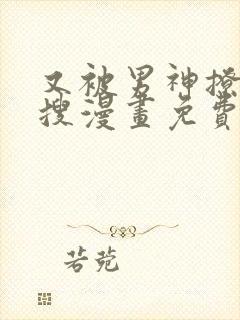 又被男神撩
搜漫畫免費
若菀